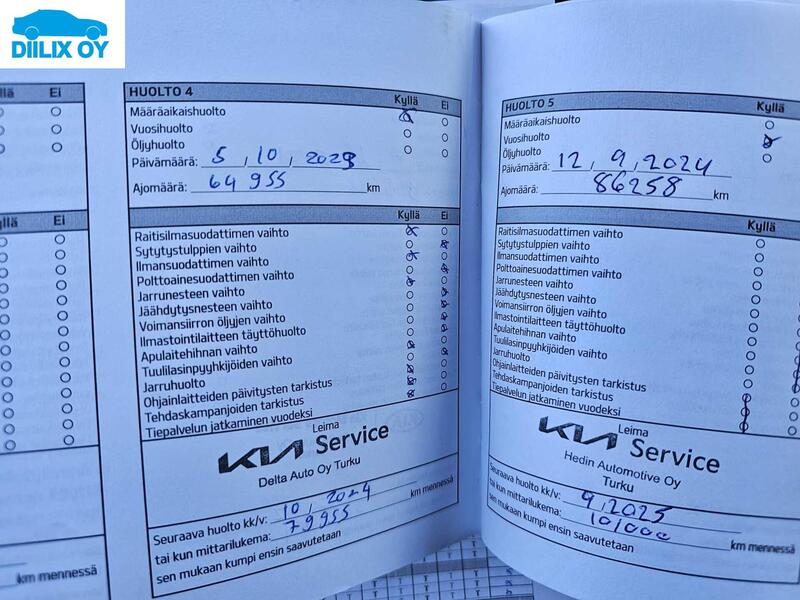 DIILIX OY
llä Ei
llä Ei
km mennessä
HUOLTO 4
Kyllä Ei
Määräaikaishuolto
Vuosihuolto
Öljyhuolto
Päivämäärä: 5, 10, 2023
Ajomäärä: 64 955 km
Kyllä Ei
Raitisilmasuodattimen vaihto
Sytytystulppien vaihto
Ilmansuodattimen vaihto
Polttoainesuodattimen vaihto
Jarrunesteen vaihto
Jäähdytysnesteen vaihto
Voimansiirron öljyjen vaihto
Ilmastointilaitteen täyttöhuolto
Apulaitehihnan vaihto
Tuulilasinpyyhkijöiden vaihto
Jarruhuolto
Ohjainlaitteiden päivitysten tarkistus
Tehdaskampanjoiden tarkistus
Tiepalvelun jatkaminen vuodeksi
Leima
KIA Service
Delta Auto Oy Turku
Seuraava huolto kk/v: 10, 2024
tai kun mittarilukema: 79955 km mennessä
sen mukaan kumpi ensin saavutetaan
HUOLTO 5
Kyllä
Määräaikaishuolto
Vuosihuolto
Öljyhuolto
Päivämäärä: 12, 9, 2024
Ajomäärä: 86258 km
Kyllä
Raitisilmasuodattimen vaihto
Sytytystulppien vaihto
Ilmansuodattimen vaihto
Polttoainesuodattimen vaihto
Jarrunesteen vaihto
Jäähdytysnesteen vaihto
Voimansiirron öljyjen vaihto
Ilmastointilaitteen täyttöhuolto
Apulaitehihnan vaihto
Tuulilasinpyyhkijöiden vaihto
Jarruhuolto
Ohjainlaitteiden päivitysten tarkistus
Tehdaskampanjoiden tarkistus
Tiepalvelun jatkaminen vuodeksi
Leima
KIA Service
Hedin Automotive Oy
Turku
Seuraava huolto kk/v: 9, 2025
tai kun mittarilukema: 101000 km mennessä
sen mukaan kumpi ensin saavutetaan